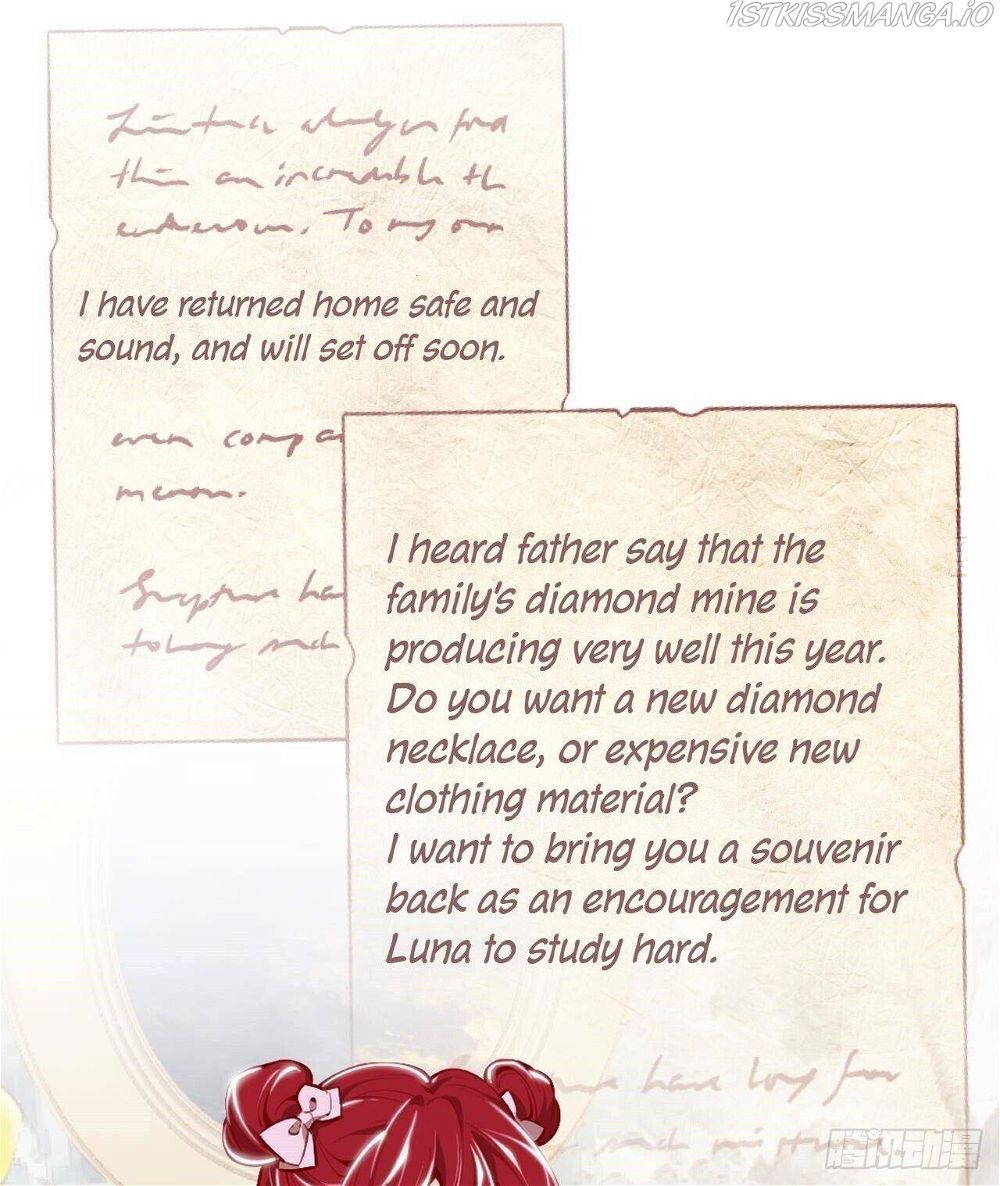 1STKISSMANGA.IO
an incredible th
To my own
I have returned home safe and
sound, and will set off soon.
even
I heard father say that the
family's diamond mine is
producing very well this year.
Do you want a new diamond
necklace, or expensive new
clothing material?
I want to bring you a souvenir
back as an encouragement for
Luna to study hard.
have long
腾讯动漫